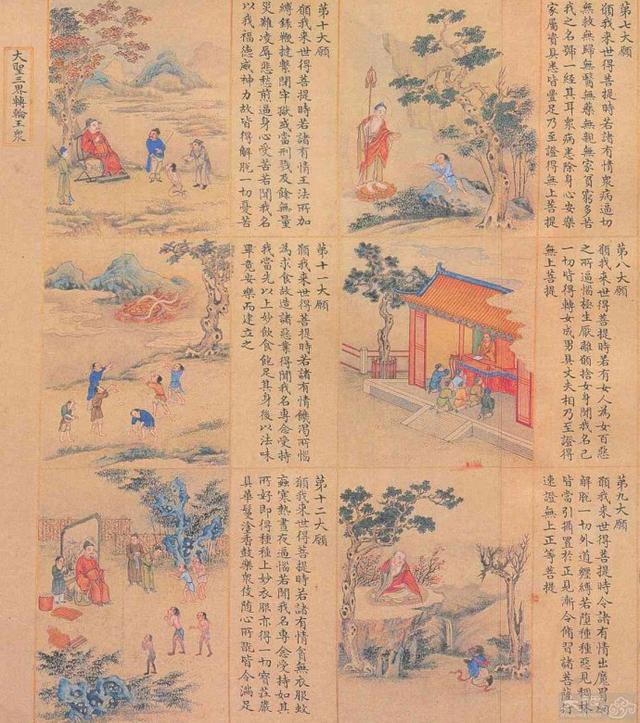 第七大願
願我来世得菩提時若諸有情衆病逼切
無救無歸無醫無藥無親無家貧窮多苦
我之名號一經其耳衆病悉除身心安樂
家屬資具悉皆豊足乃至證得無上菩提
第八大願
願我来世得菩提時若有女人為女百惡
之所逼惱極生厭離願捨女身聞我名已
一切皆得轉女成男具丈夫相乃至證得
無上菩提
第九大願
願我来世得菩提時令諸有情出魔罥網
解脱一切外道纏縛若墮種種惡見稠林
皆當引攝置於正見漸令修習諸菩薩行
速證無上正等菩提
第十大願
願我来世得菩提時若諸有情王法所加
縛錄鞭撻繫閉牢獄或當刑戮及餘無量
災難凌辱悲愁煎逼身心受苦若聞我名
以我福德威神力故皆得解脱一切憂苦
第十一大願
願我来世得菩提時若諸有情饑渴所惱
為求食故造諸惡業得聞我名專念受持
我當先以上妙飲食飽足其身後以法味
畢竟安樂而建立之
第十二大願
願我来世得菩提時若諸有情貧無衣服蚊
蝱寒熱晝夜逼惱若聞我名專念受持如其
所好即得種種上妙衣服亦得一切寶莊嚴
具華鬘塗香鼓樂衆伎隨心所翫皆令満足
大聖三界轉輪王衆